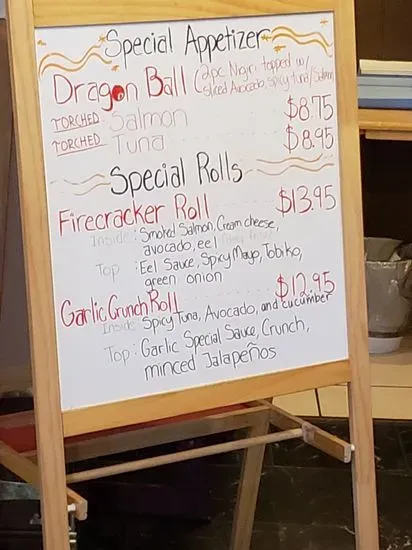 Special Appetizer
Dragon Ball (2pc Nigiri topped w/
sliced Avocado, spicy tuna/Salmon
TORCHED Salmon $8.75
TORCHED Tuna $8.95
Special Rolls
Firecracker Roll $13.95
Inside: Smoked Salmon, Cream cheese,
avocado, eel
Top: Eel Sauce, Spicy Mayo, Tobiko,
green onion
Garlic Crunch Roll $12.95
Inside: Spicy Tuna, Avocado, and cucumber
Top: Garlic Special Sauce, Crunch,
minced Jalapeños